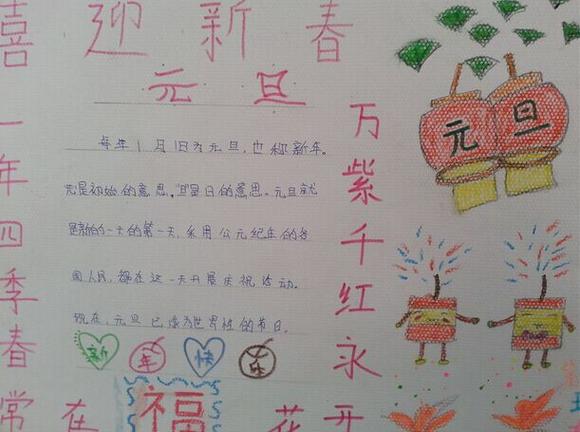 喜迎新春
元旦
每年1月1日为元旦,也称新年。
元是初始的意思,旦是日的意思。元旦就
是新的一年的第一天,采用公元纪年的各
国人民,都在这一天开展庆祝活动。
现在,元旦已成为世界性的节日。
新年快乐
一年四季春常在
万紫千红永开花
福
元旦